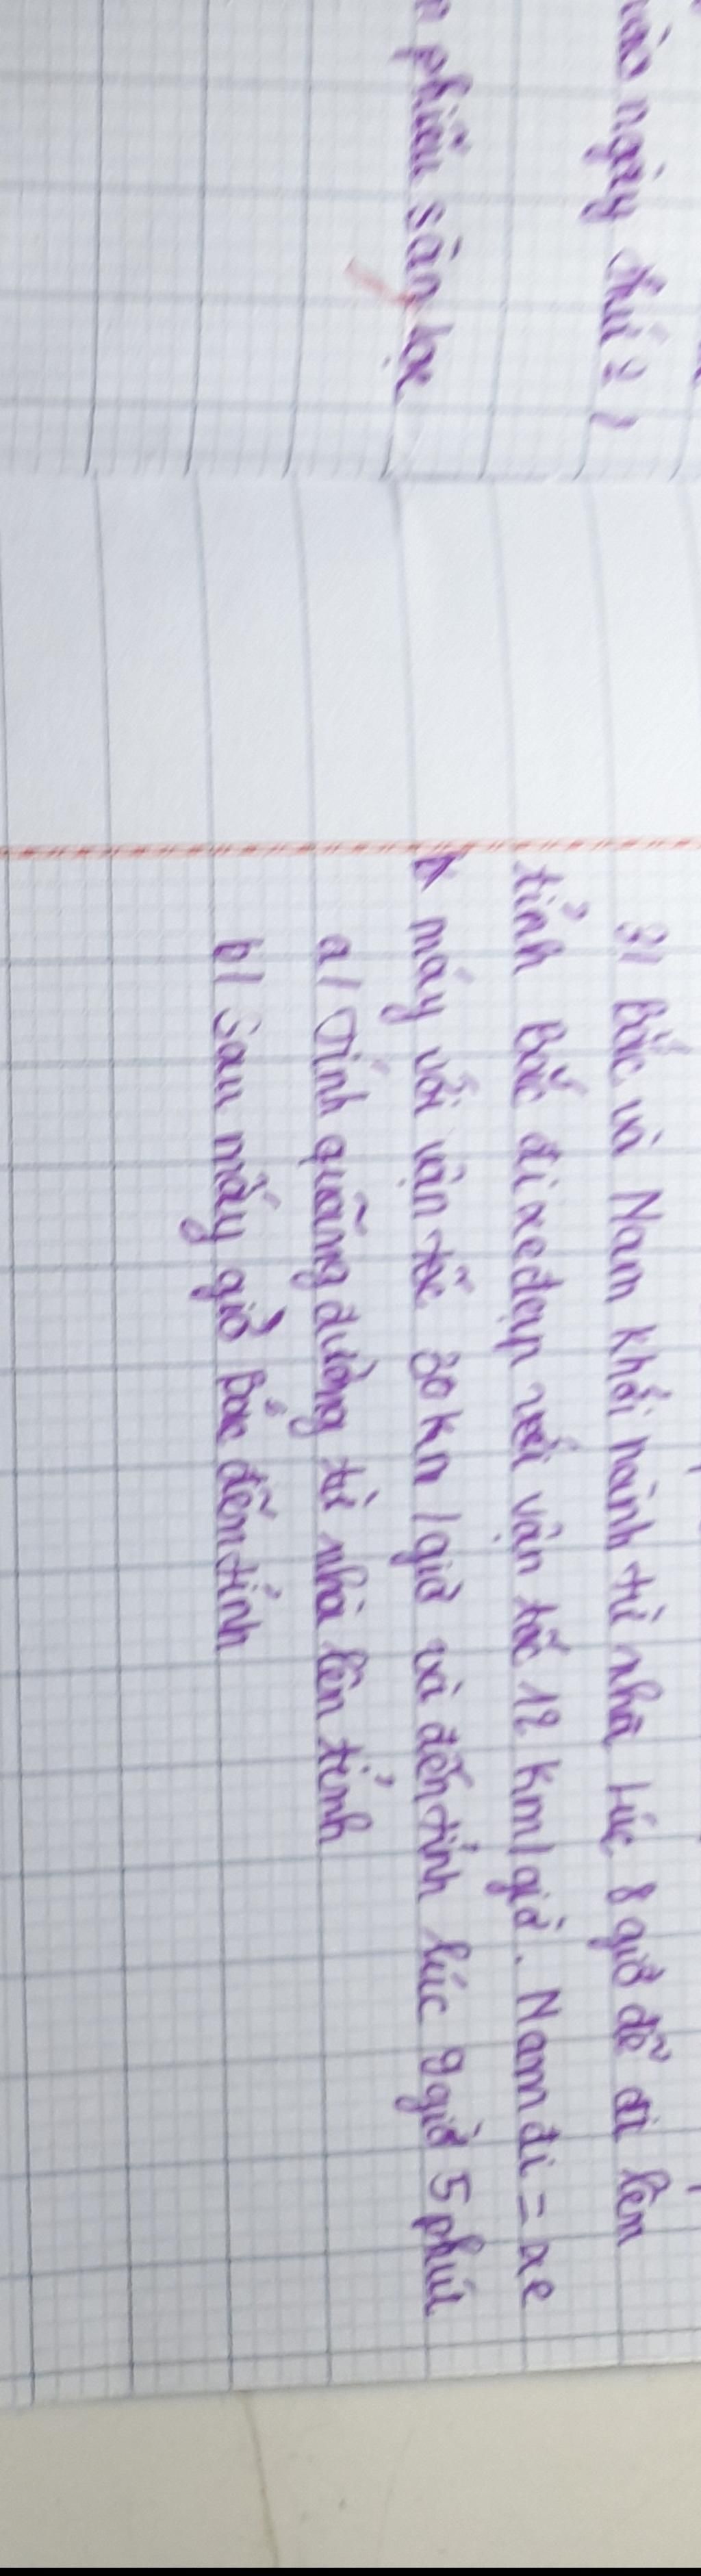 vào ngày thứ 2,
phiếu sân lạc
3/ Bắc và Nam khởi hành từ nhà Lúc 8 giờ để đi lên
tỉnh Bắc đi xe đạp với vận tốc 12 Km/giờ. Nam đi = xe
máy với vận tốc 30 Km/giờ và đến tỉnh lúc 9 giờ 5 phút
a/ Tính quãng đường từ nhà lên tỉnh
b/ Sau mấy giờ Bắc đến tỉnh